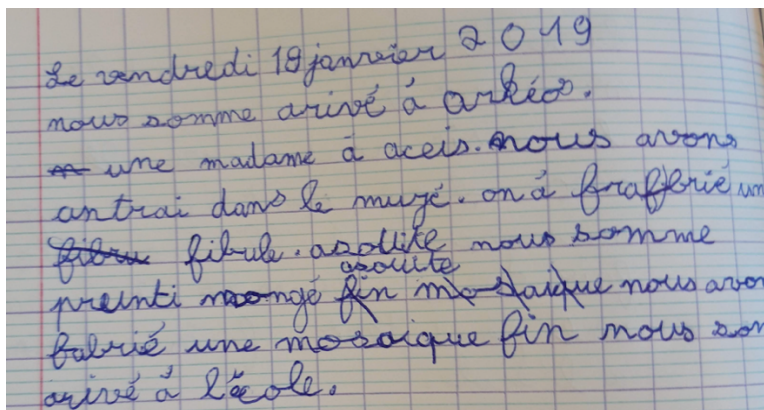 Le vendredi 19 janvier 2019
nous somme arivé à arkéos.
une madame à aceis. nous avons
antrai dans le muzé. on à fraffrié un
fibule. asouite nous somme
asouite
preunti mongé fin mosaique nous avon
fabrié une mosaique fin nous som
arivé à l'école.